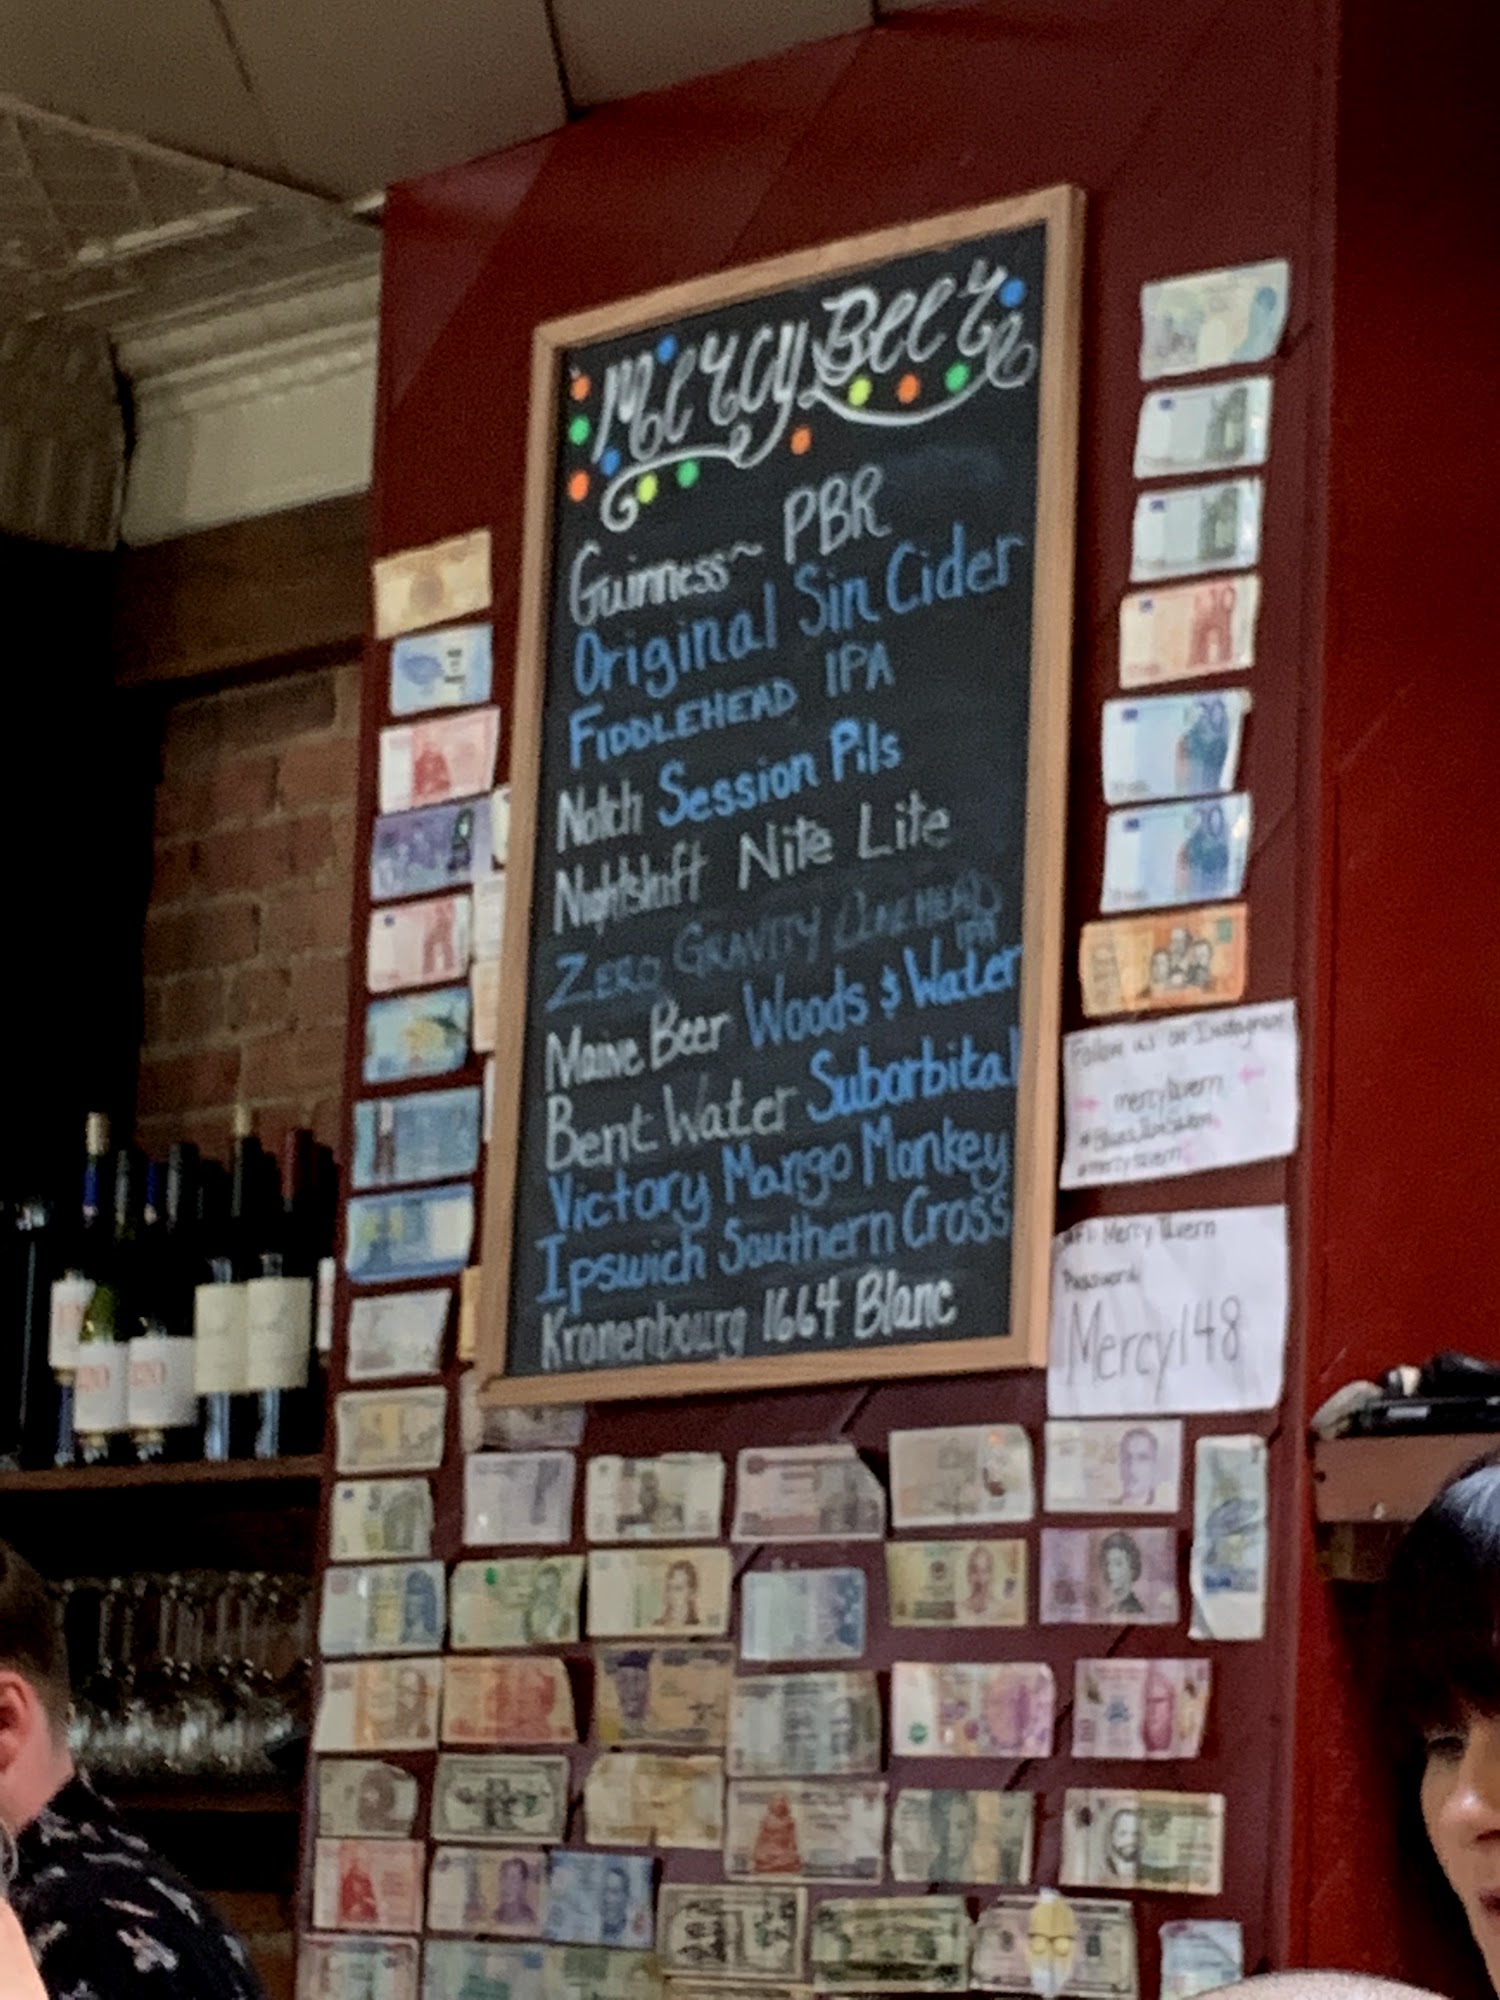 Mercy Beer
Guinness~ PBR
Original Sin Cider
FIDDLEHEAD IPA
Notch Session Pils
Nightshift Nite Lite
ZERO GRAVITY CONEHEAD
IPA
Maine Beer Woods & Water
Bent Water Suborbital
Victory Mango Monkey
Ipswich Southern Cross
Kronenbourg 1664 Blanc
10
20
20
Follow us on Instagram
mercytavern
#mercytavern
Mercy Tavern
Password
Mercy148